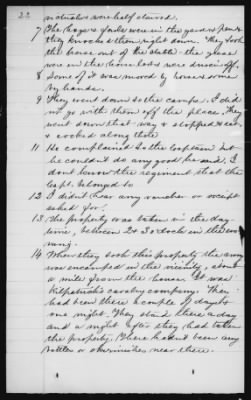 22
naturales were half starved.
7 The hogs & fowls were in the yard & pens &
they knocked them right down. They took
the horse out of the stable. the geese
were in the horse lot & were driven off.
8 Some of it was moved by horses some
by hands.
9 They went down to the camps. I did
not go with them off the place. They
went down that way & stopped & eat
& cooked along there
11 He complained to the captain but
he couldn't do any good he said. I
don't know the regiment that the
Capt. belonged to
12 I didn't hear any voucher or receipt
asked for.
13 The property was taken in the day-
time, between 2 & 3 o'clock in the eve-
ning.
14 When they took this property the army
was encamped in the vicinity, about
a mile from the house. It was
Kilpatrick's cavalry company. They
had been there a couple of days &
one night. They staid there a day
and a night after they had taken
the property. There hadn't been any
battles or skirmishes near there.